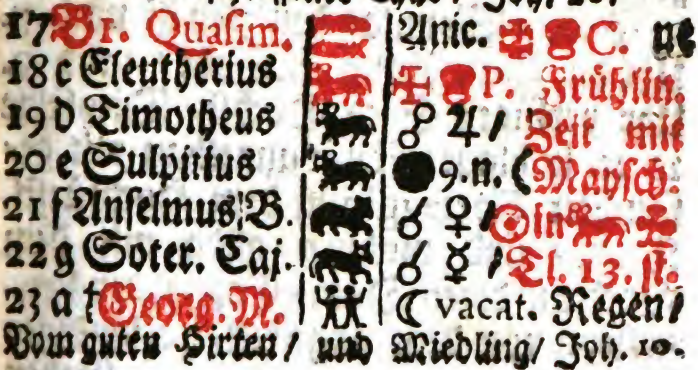 17 B 1. Quasim. Anic. C.
18 c Eleutherius P. Frühlin.
19 d Timotheus ☍ ♃ / Zeit mit
20 e Sulpitius ● 9. n. ☾ Maysch.
21 f Anselmus B. ☌ ♀ / ☉ in
22 g Soter. Caj. ☌ ☿ / Tl. 13. st.
23 a † Georg. M. ☾ vacat. Regen /
Vom guten Hirten / und Miedling / Joh. 10.